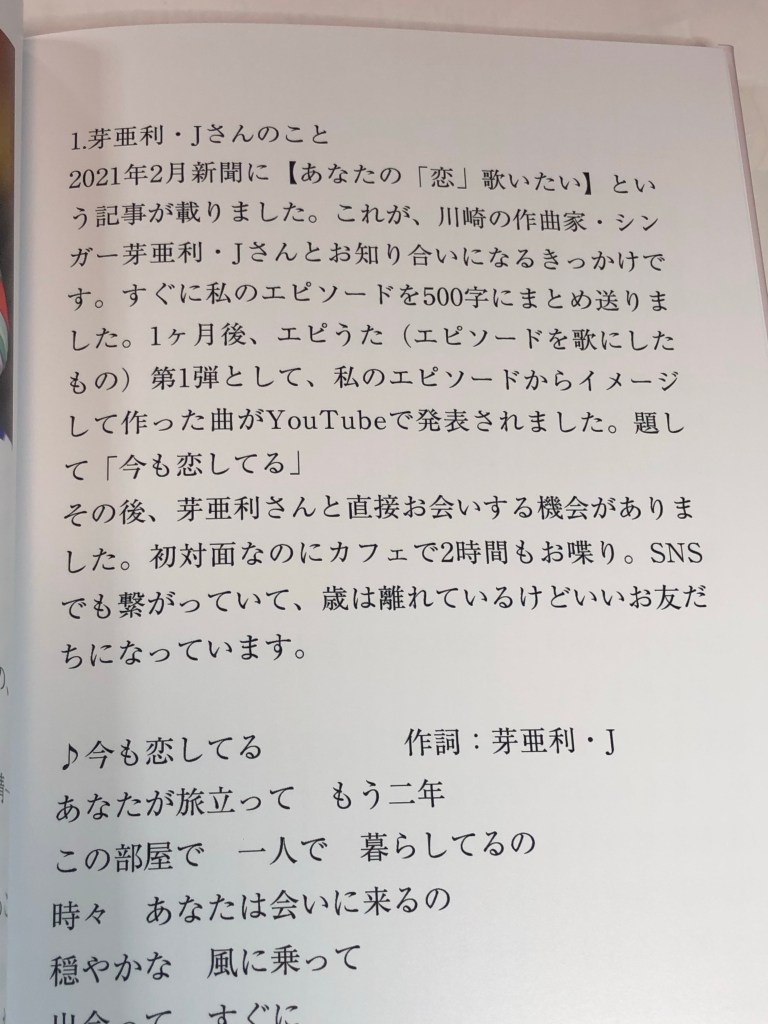 1.芽亜利・Jさんのこと
2021年2月新聞に【あなたの「恋」歌いたい】とい
う記事が載りました。これが、川崎の作曲家・シン
ガー芽亜利・Jさんとお知り合いになるきっかけで
す。すぐに私のエピソードを500字にまとめ送りま
した。1ヶ月後、エピうた（エピソードを歌にした
もの）第1弾として、私のエピソードからイメージ
して作った曲がYouTubeで発表されました。題し
て「今も恋してる」
その後、芽亜利さんと直接お会いする機会がありま
した。初対面なのにカフェで2時間もお喋り。SNS
でも繋がっていて、歳は離れているけどいいお友だ
ちになっています。
♪今も恋してる　　　　　作詞：芽亜利・J
あなたが旅立って　もう二年
この部屋で　一人で　暮らしてるの
時々　あなたは会いに来るの
穏やかな　風に乗って
出会って　すぐに